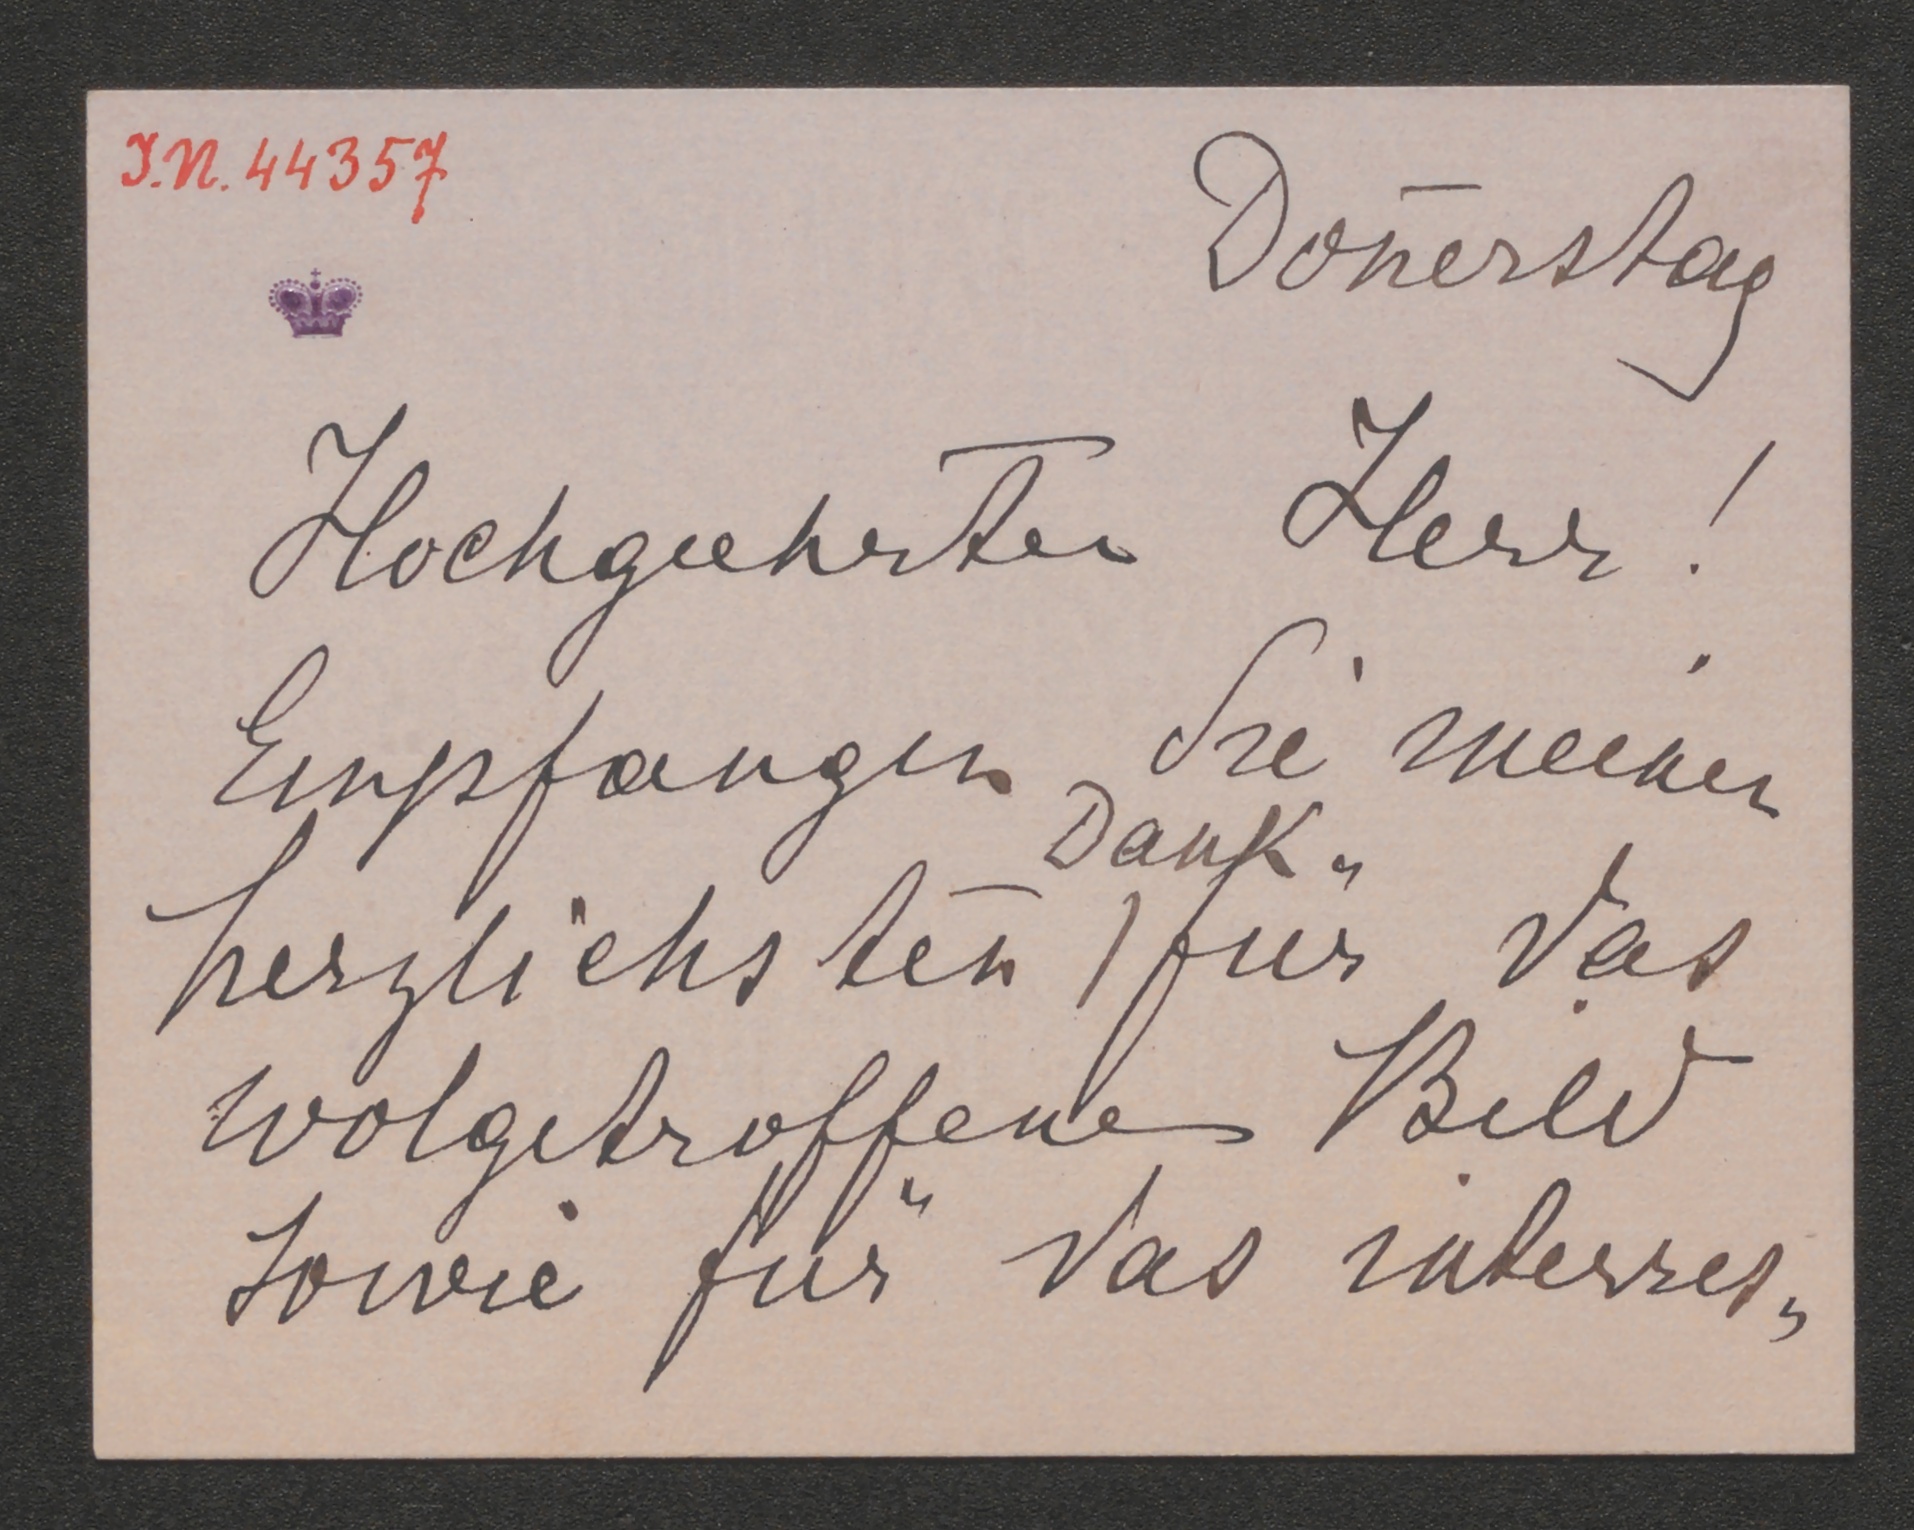 I.N. 44357
Don̄erstag
Hochgeehrter Herr!
Empfangen Sie meinen
Dank
herzlichsten für das
wolgetroffene Bild
sowie für das interres„